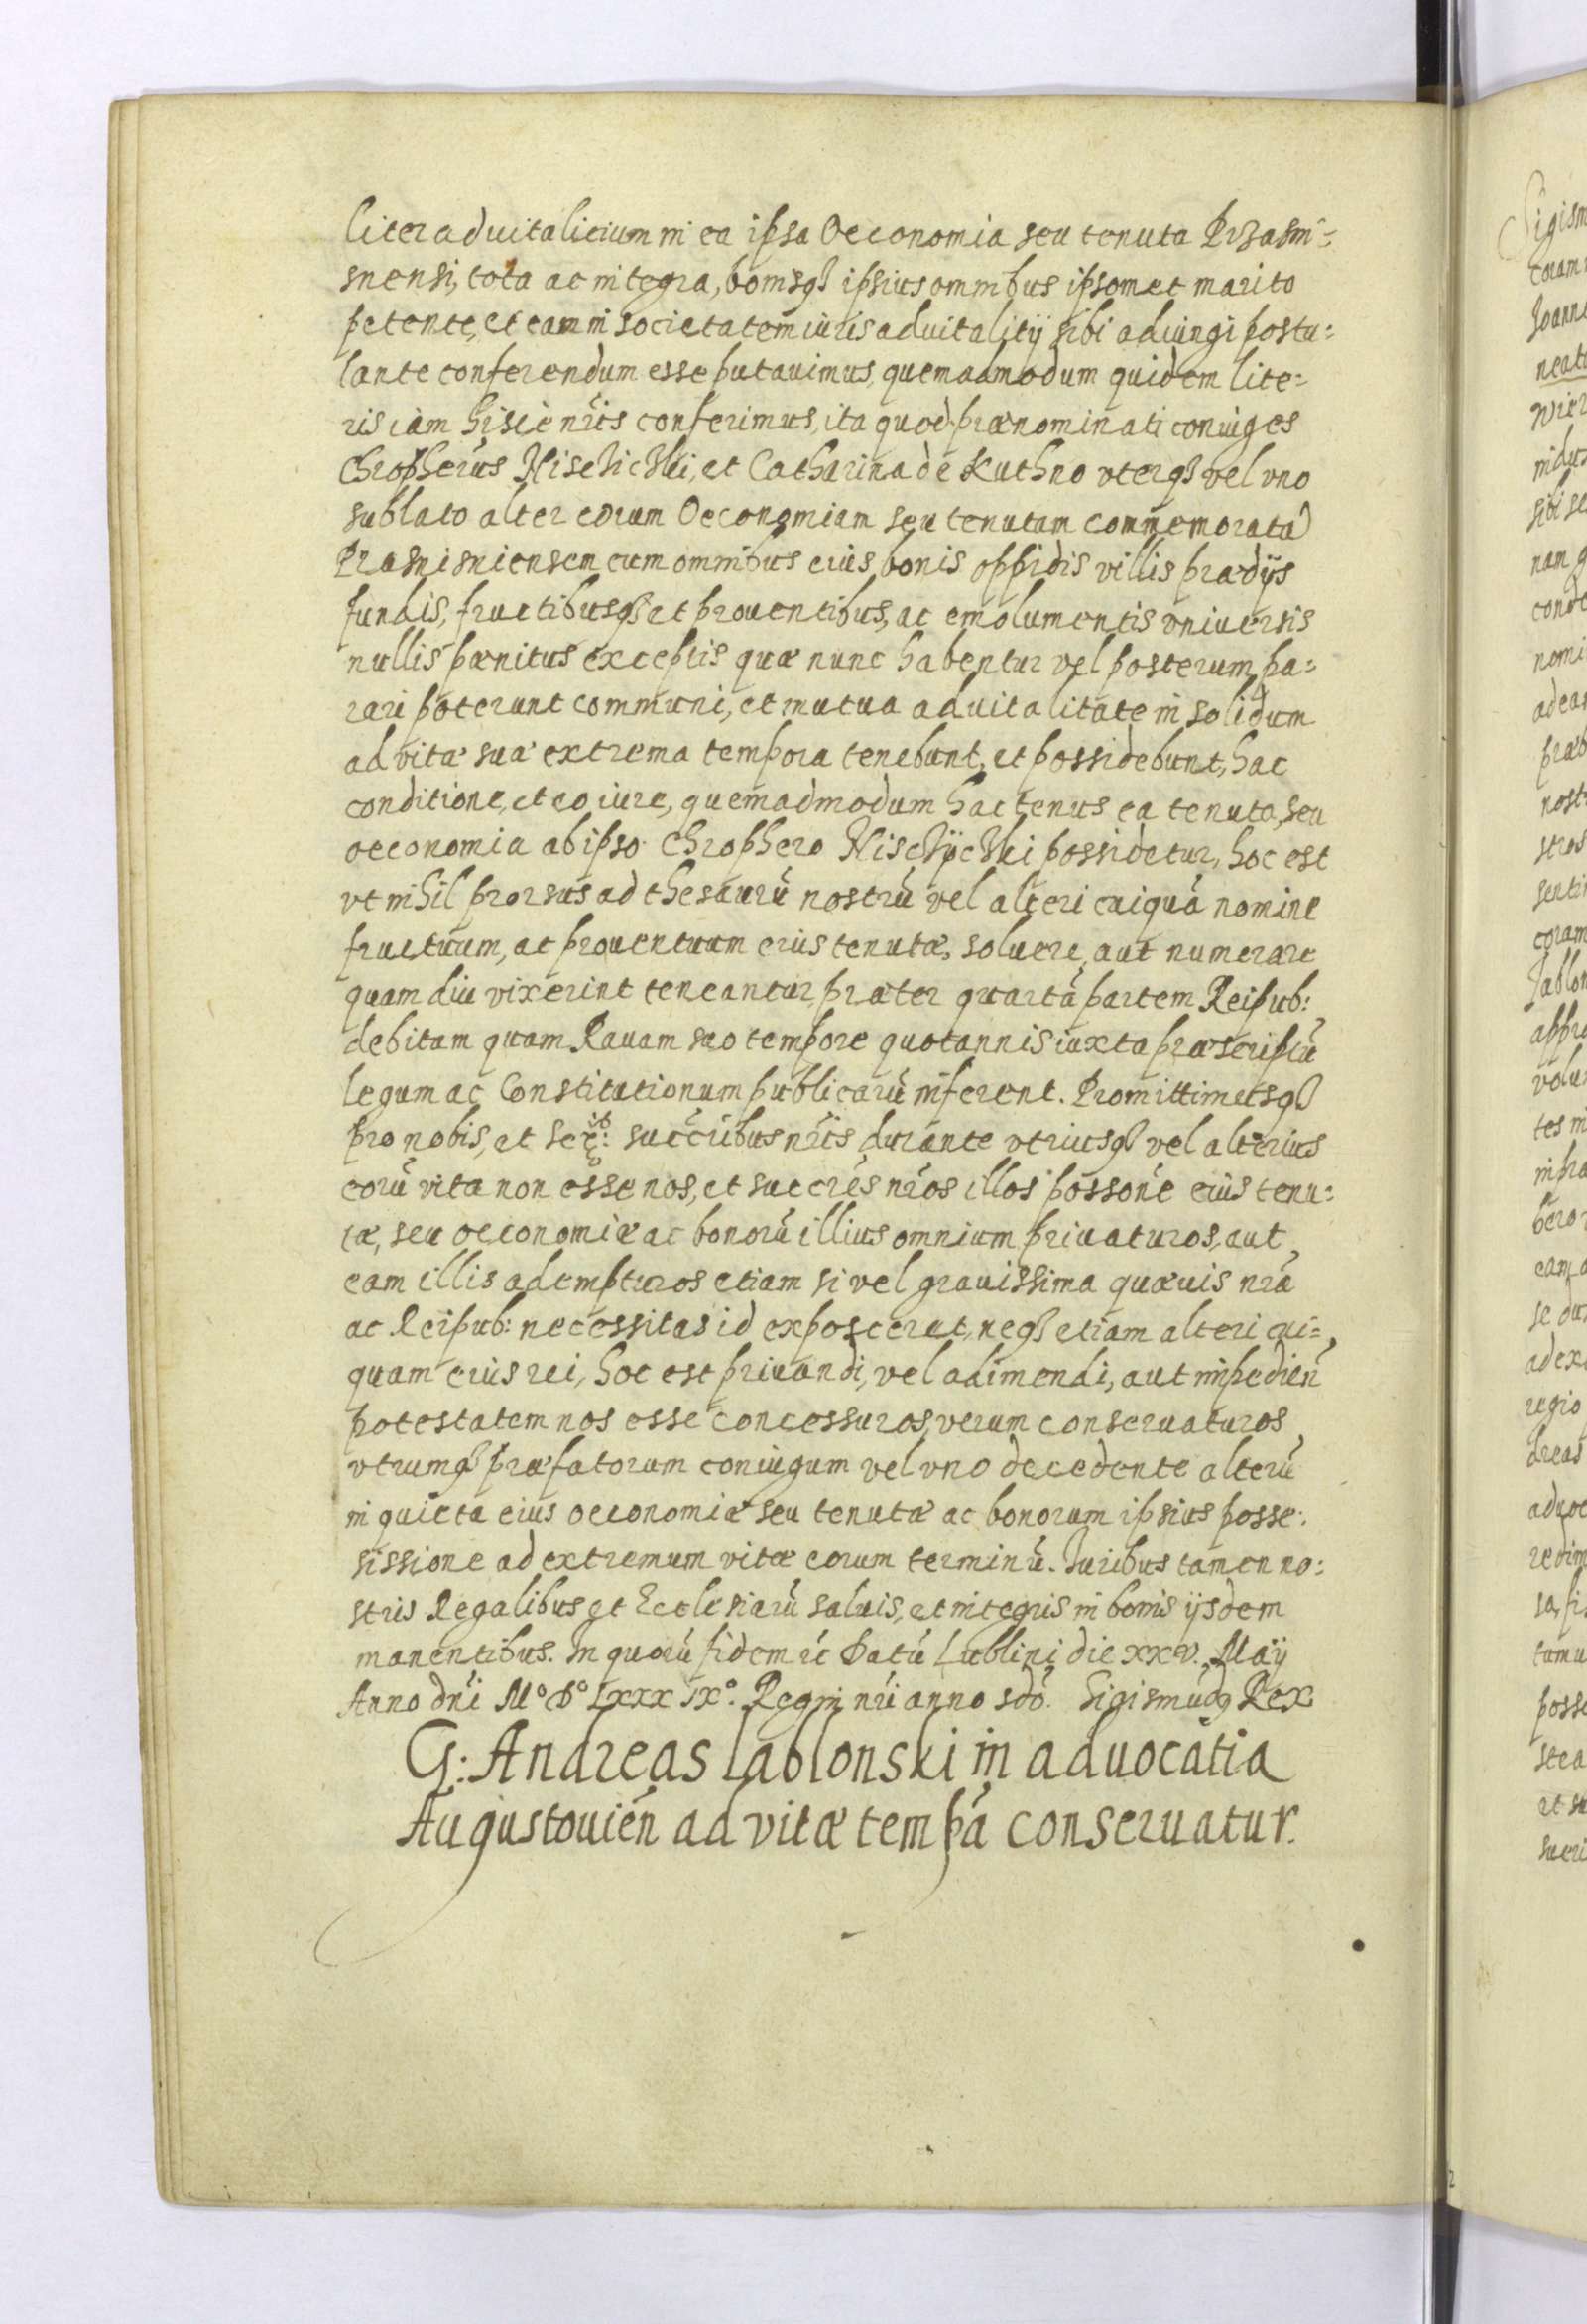 liter aduitalicium in ea ipsa Oeconomia seu tenuta Przasni=
snensi, tota ac integra, bonisqȝ ipsius omnibus ipsomet marito
petente, et eam in societatem iuris aduitalitij sibi adiungi postu=
lante conferendum esse putauimus, quemadmodum quidem lite=
ris iam hisce nr̃is conferimus, ita quod prænominati coniuges
Chropherus Nisczicki, et Catharina de Kuthno vterqȝ vel vno
sublato alter eorum Oeconomiam seu tenutam commemoratã
Prasnisniensem cum omnibus eius bonis oppidis villis prædijs
fundis, fructibusqȝ et prouentibus, ac emolumentis vniuersis
nullis pænitus exceptis quæ nunc habentur vel posterum pa=
rari poterunt communi, et mutua aduitalitate in solidum
ad vitæ suæ extrema tempora tenebunt, et possidebunt, hac
conditione, et eo iure, quemadmodum hactenus ea tenuta, seu
oeconomia ab ipso Chrophero Nisczijcki possidetur, hoc est
vt nihil prorsus ad thesaurũ nostrũ vel alteri cuiquã nomine
fructuum, ac prouentuum eius tenutæ, soluere, aut numerare
quam diu vixerint teneantur, præter quartã partem Reipub:
debitam quam Rauam suo tempore quotannis iuxta præscriptũ
legum ac Constitutionum publicarũ inferent. Promittimusqȝ
pro nobis, et succ̃ribus nr̃is durante vtriusqȝ vel alterius
eorũ vita non esse nos, et succr̃es nr̃os illos possõne eius tenu=
tæ, seu oeconomiæ ac bonorũ illius omnium priuaturos, aut
eam illis adempturos etiam si vel grauissima quæuis nr̃a
ac Reipub: necessitas id exposcerat, neqȝ etiam alteri cui=
quam eius rei, hoc est priuandi, vel adimendi, aut impedieñ
potestatem nos esse concessuros, verum conseruaturos
vtrumqȝ præfatorum coniugum vel vno decedente alterũ
in quieta eius oeconomiæ seu tenutæ ac bonorum ipsius posse:
sissione ad extremum vitæ eorum terminũ. Iuribus tamen no:
stris Regalibus et Ecclesiarũ saluis, et integris in bonis ijsdem
manentibus. In quorũ fidem rc̃ Datũ Lublini die xxv. Maij
Anno dñi M° D° Lxxx ix°. Regni nr̃i anno sdõ. Sigismũdꝰ Rex
G: Andreas Iablonski in aduocatia
Augustouieñ ad vitæ tempã conseruatur.